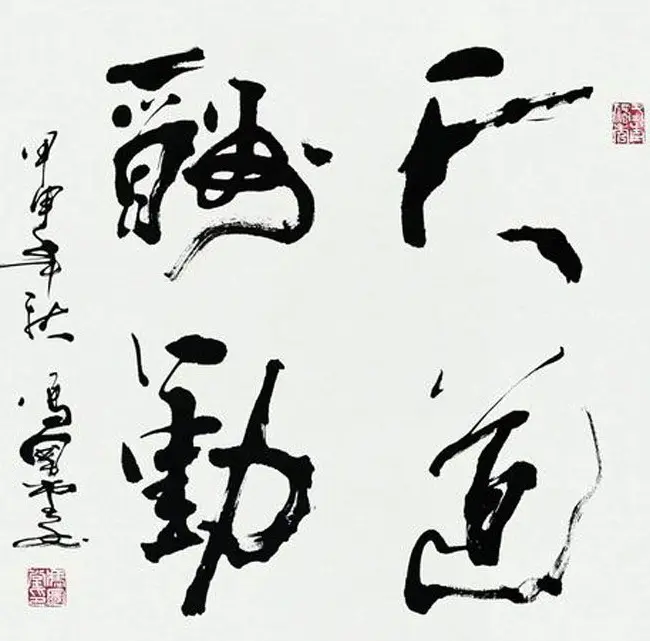 天道
酬勤
甲申年秋